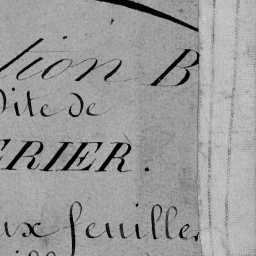 tion B
Dite de
ERIER.
ux feuilles